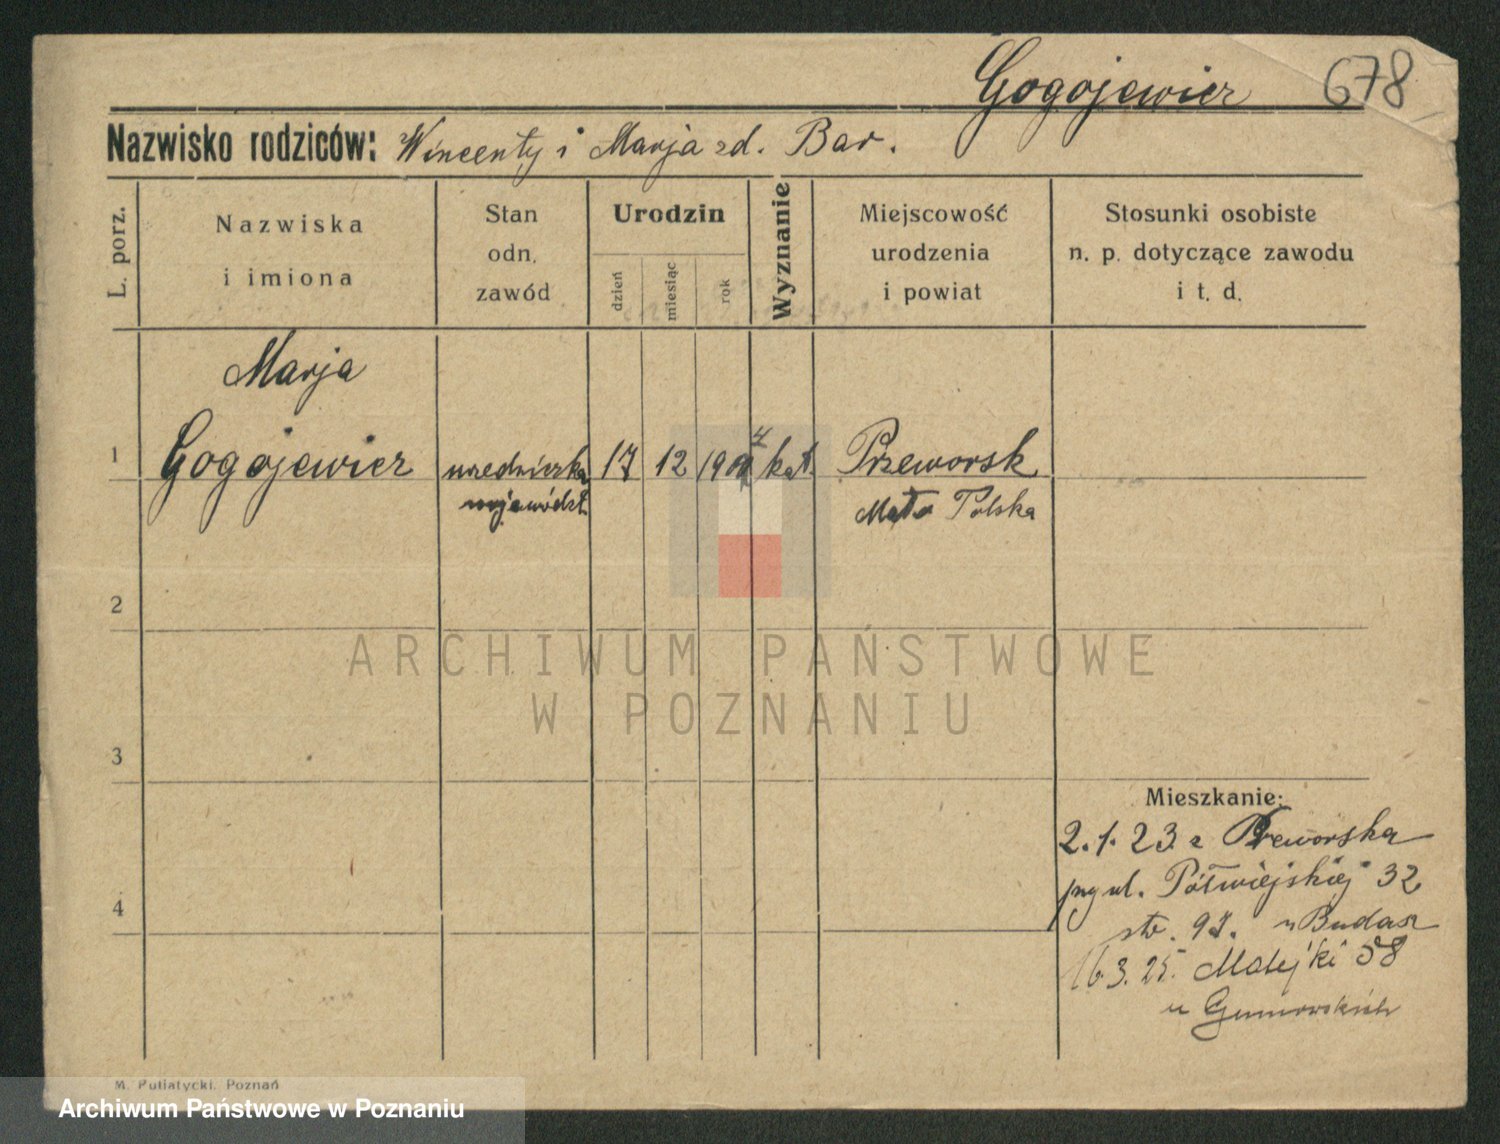 Gogojewicz 678
Nazwisko rodziców: Wincenty i Marja zd. Bar.
L. porz.
Nazwiska
i imiona
Stan
odn.
zawód
Urodzin
dzień
miesiąc
rok
Wyznanie
Miejscowość
urodzenia
i powiat
Stosunki osobiste
n. p. dotyczące zawodu
i t. d.
Marja
1 Gogojewicz urzedniczka 17 12 1904 kat. Przeworsk
województ. Mało Polska
2
3
4
ARCHIWUM PAŃSTWOWE
W POZNANIU
Mieszkanie:
2.1.23. z Przeworska
przy ul. Półwiejskiej 32
str. 97. u Budasz
16.3.25. Matejki 58
u
M. Putiatycki, Poznań
Archiwum Państwowe w Poznaniu